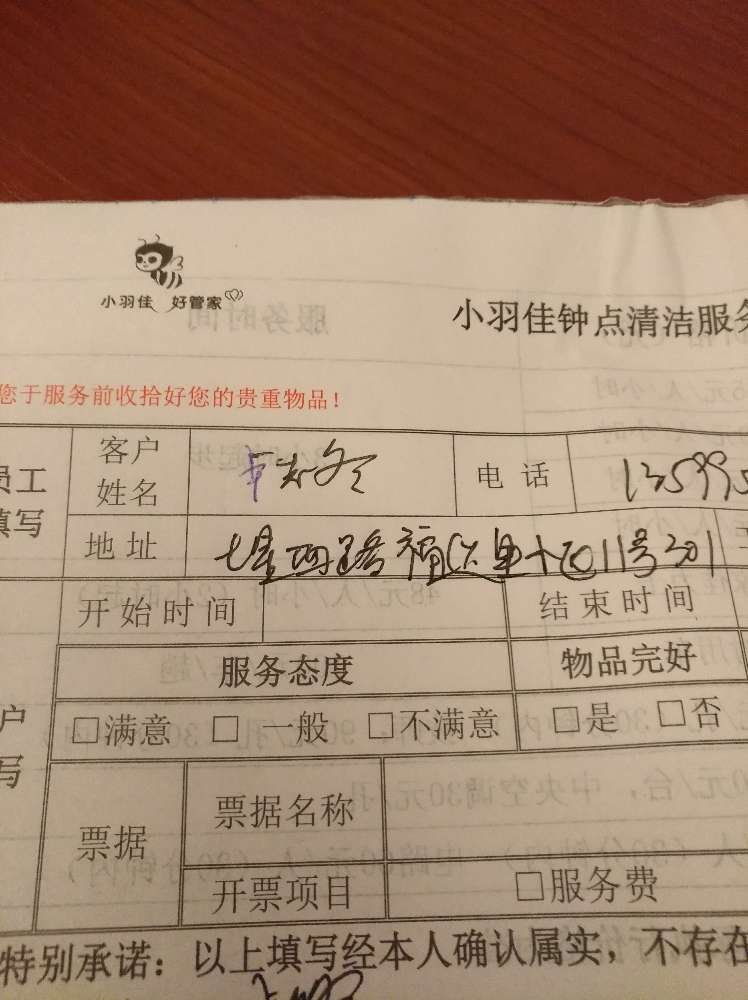 小羽佳 好管家
小羽佳钟点清洁服务
您于服务前收拾好您的贵重物品！
员工
填写
客户
姓名
电 话 135995
地 址 七星西路福 里 11号301
开 始 时 间 结 束 时 间
服务态度 物品完好
户
写
□满意 □ 一般 □不满意 □是 □否
票据
票据名称
开票项目 □服务费
特别承诺：以上填写经本人确认属实，不存在